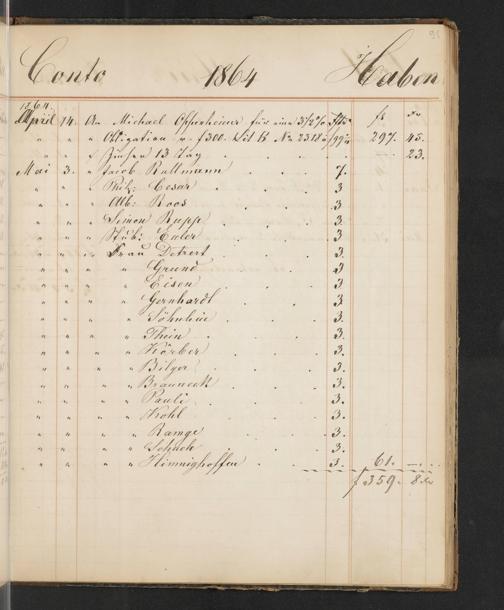 Conto 1864 Haben
1864. fl Xr
April 14. An Michael Oppenheimer für eine 3½%
" " " Obligation v. f 300. Lit B No 2318 à 99¼ 297. 45.
" " " Zinsen 13 Tag . . . . — 23.
Mai 3. " Jacob Rullmann . . . 7.
" " " Phil: Cesar . . . 3
" " " Alb: Roos . . . 3
" " " Simon Rupp . . . 3
" " " Euler . . . 3
" " " Frau Detvert . . . 3.
" " " " Grund . . . 3
" " " " Eisen . . . 3
" " " " Gernhardt . . . 3
" " " " Söhnlein . . . 3.
" " " " Thein . . . 3
" " " " Körber . . . 3.
" " " " Bilger . . . 3.
" " " " Brauneck . . . 3.
" " " " Pauli . . . 3.
" " " " Kohl . . . 3.
" " " " Ramge . . . 3.
" " " " Schuch . . . 3.
" " " " Himmighoffen . . . 3. 61. —
f 359. 8 Xr